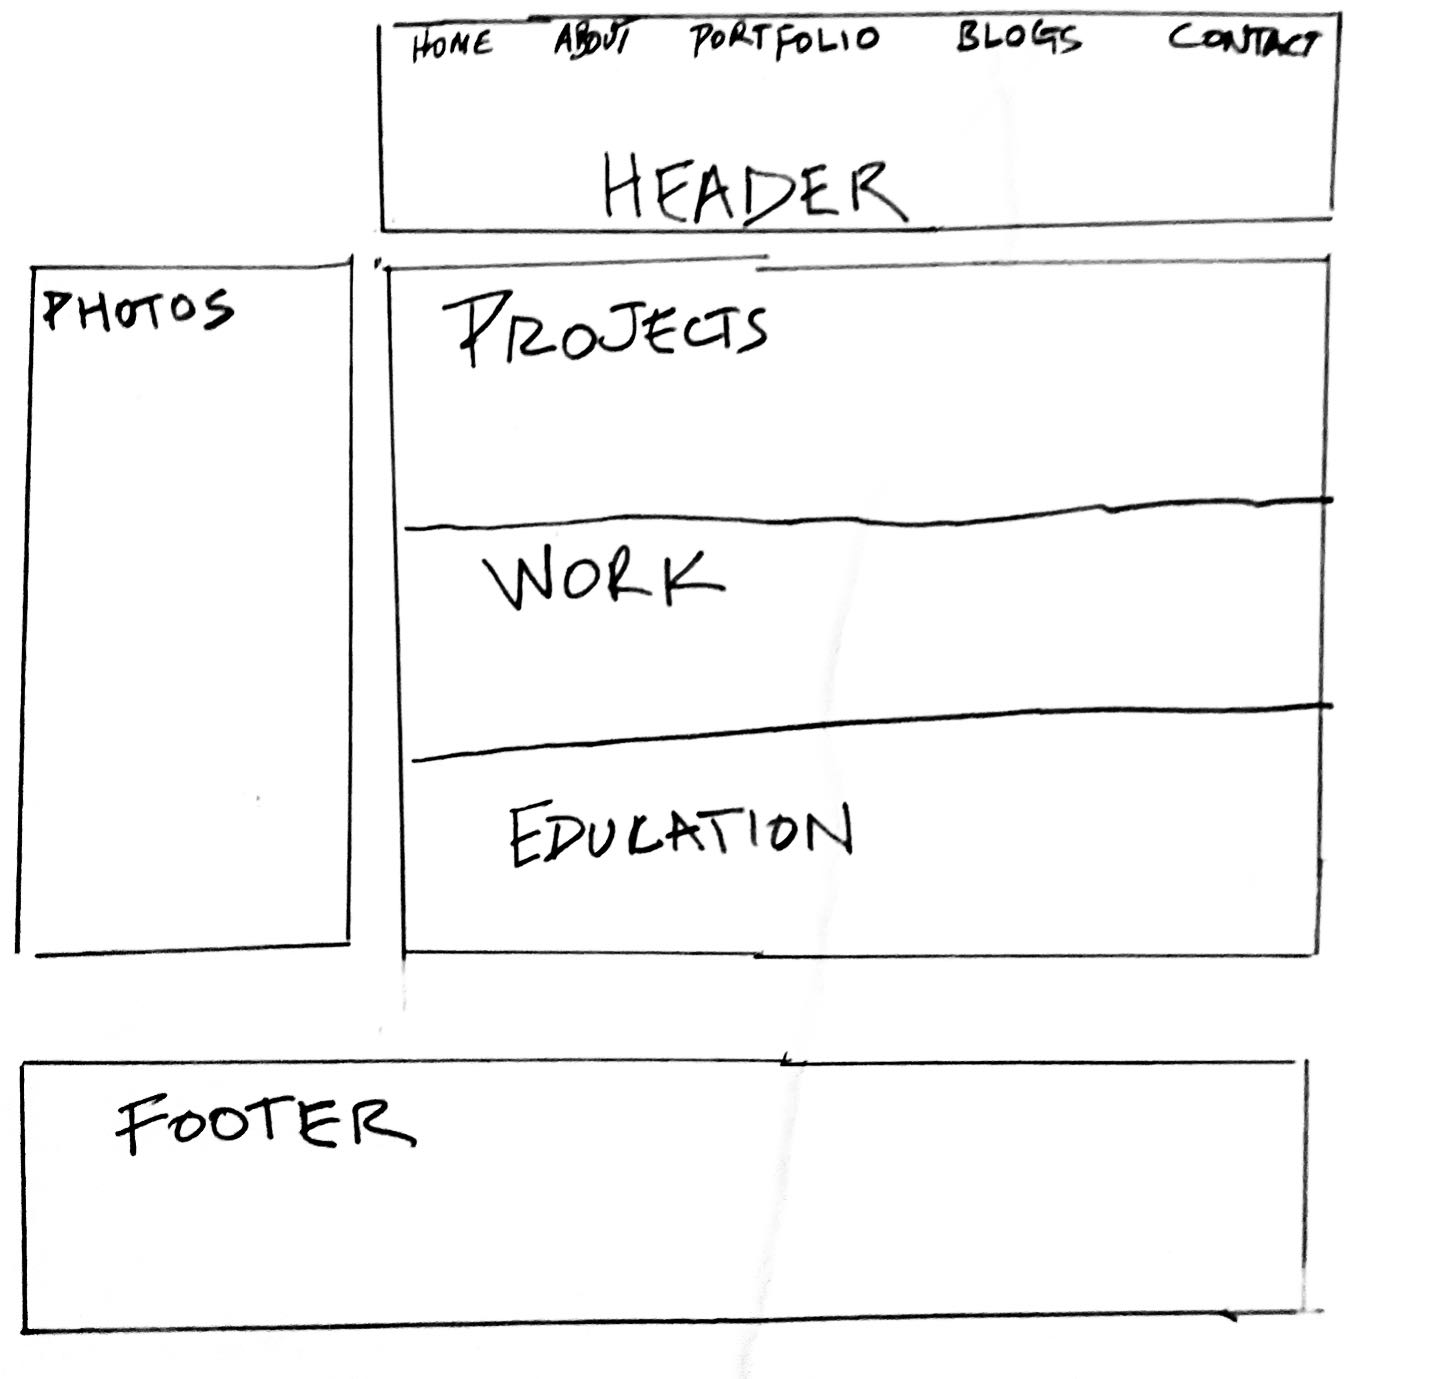 HOME ABOUT PORTFOLIO BLOGS CONTACT
HEADER
PHOTOS
PROJECTS
WORK
EDUCATION
FOOTER